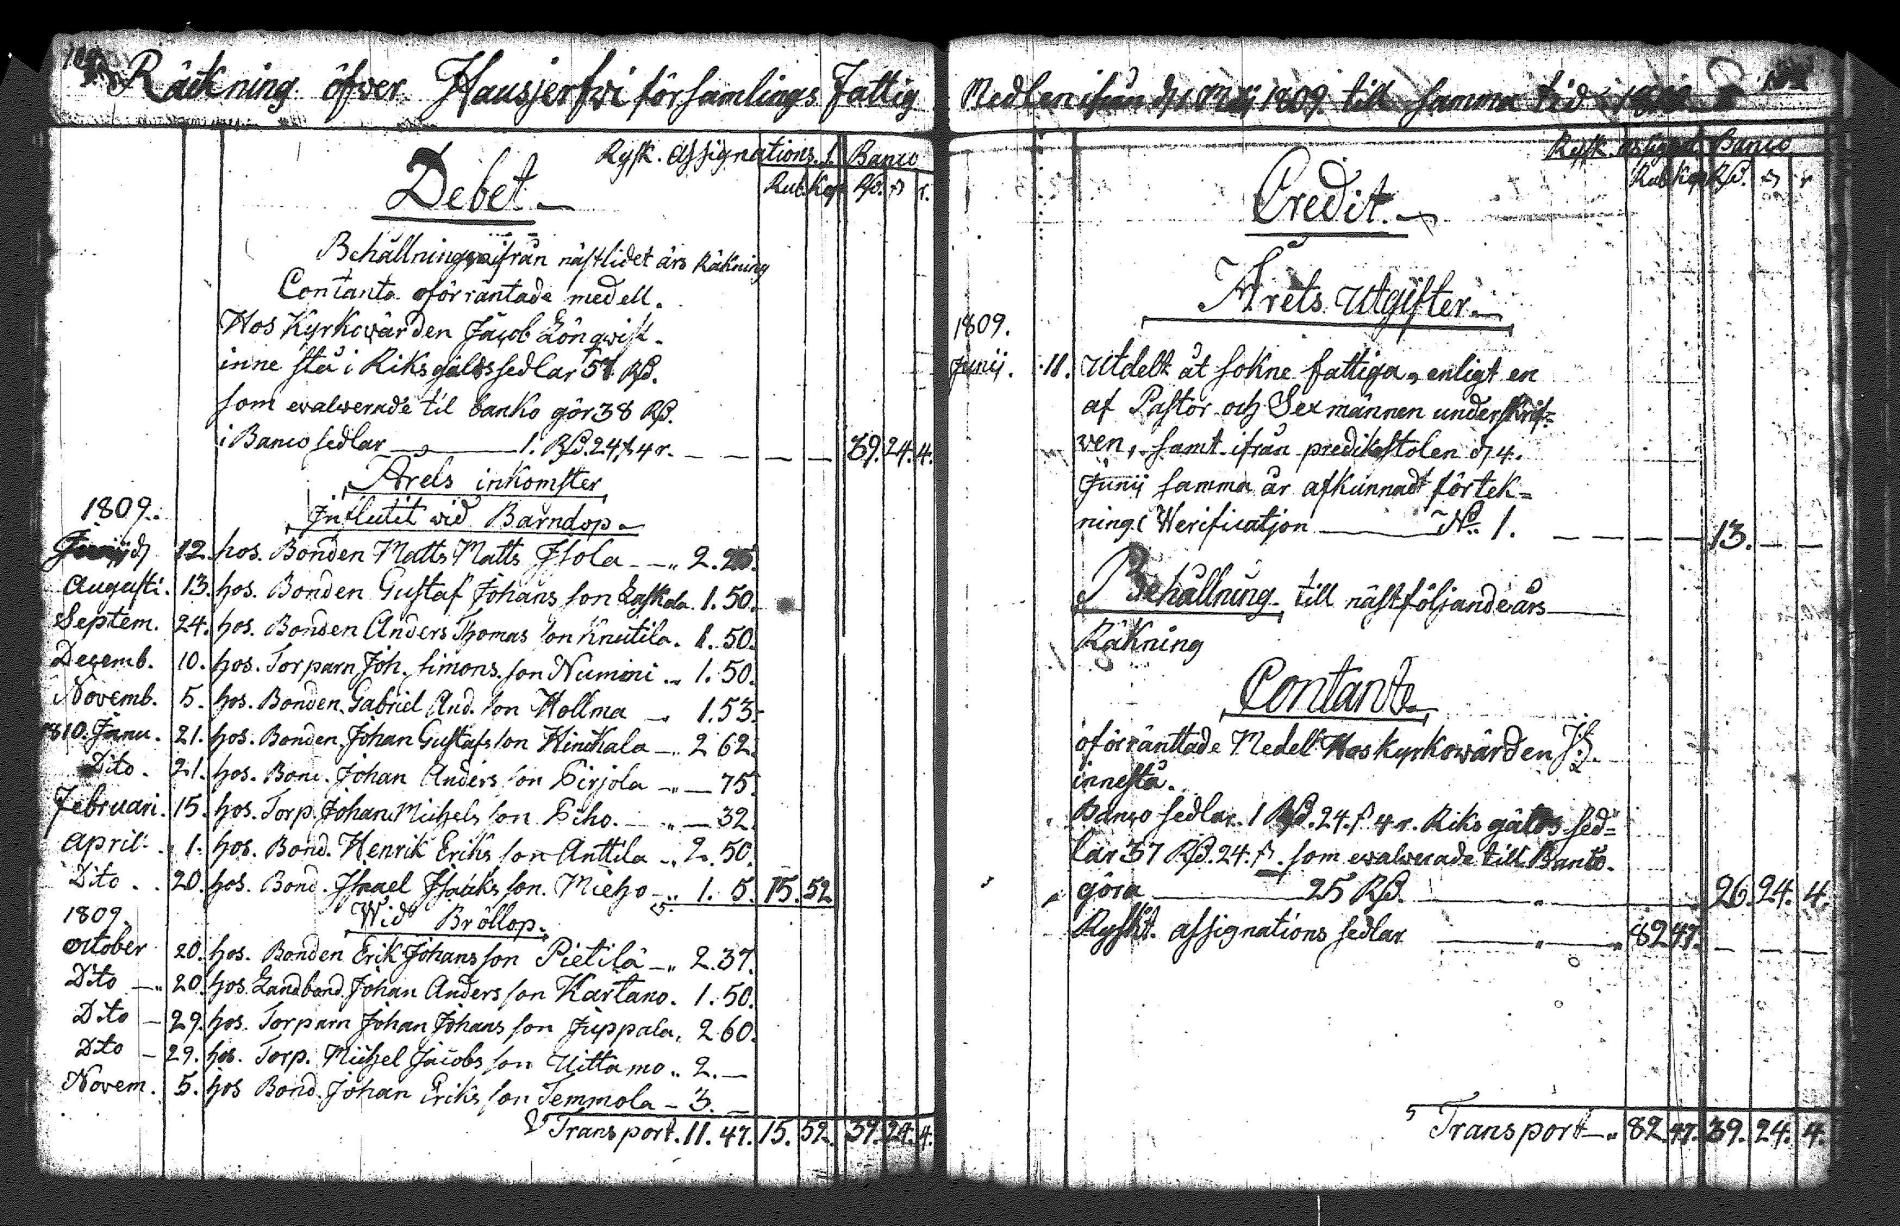 Räckning öfver Hausjerfwi församlings Fattig
Debet
Rysk. assignations. s. Banco
Rub. Kop. R/d. ß r.
Behållning ifrån nästlidet års Räkning
Contanta oförräntade medell.
Hos Kyrkowärden Jacob Lönqwist
inne stå i Riksgäldssedlar 57 Rd.
som evalverade til banko gör 38 Rd.
i Banco sedlar 1. Rd. 24 ß 4 r. 39. 24. 4.
Årets inkomster
1809. Influtit vid Barndop
12. hos. Bonden Matts Matts Isola 2.
Augusti. 13. hos. Bonden Gustaf Johans son Laskala 1. 50.
Septem. 24. hos. Bonden Anders Thomas son Knutila. 1. 50.
Decemb. 10. hos. Torparn Joh. Simons son Nummi 1. 50.
Novemb. 5. hos. Bonden Gabriel And. son Hollma 1. 53.
1810. Janu. 21. hos. Bonden Johan Gustafs son Hinkkala 2 62.
Dito. 21. hos. Bond. Johan Anders son Pirjola 75
Februari. 15. hos. Torp. Johan Michels son Piho. 32.
April. 1. hos. Bond. Henrik Eriks son Anttila 2. 50.
Dito 20. hos. Bond. Israel Isaaks son Mieho 1. 5. 15. 52
1809. Wid Bröllop.
October 20. hos. Bonden Erik Johans son Pietilä 2. 37.
Dito 20. hos Landbond. Johan Anders son Kartano. 1. 50.
Dito 29. hos. Torparn Johan Johans son Juppala. 2 60.
Dito 29. hos. Torp. Michel Jacobs son Uittamo 2. —
Novem. 5. hos Bond. Johan Eriks son Temmola 3. —
Transport. 11. 47. 15. 52. 39. 24. 4.
Medlen ifrån d. 1 Maij 1809. till samma tid
Rysk. assignat. Banco
Rub Kop R/d. ß r
Credit
Årets Utgifter
1809.
Junij. 11. Utdelt åt sokne fattiga, enligt en
af Pastor och Sexmännen underskrif=
ven, samt ifrån predikstolen d. 4.
Junij samma år afkunnadt förtek=
ning. Verification No. 1. 13.
Behållning till nästföljande års
Räkning
Contanta
oförränttade Medell Hos kyrkowärden
innestå.
Banco sedlar 1 Rd. 24. ß 4 r. Riks gälds sed=
lar 37 Rd. 24. ß. som evalverade till Banko.
göra 25 Rd. 26. 24. 4.
Ryskt. assignations sedlar 82 47.
Transport 82 47. 39. 24. 4.